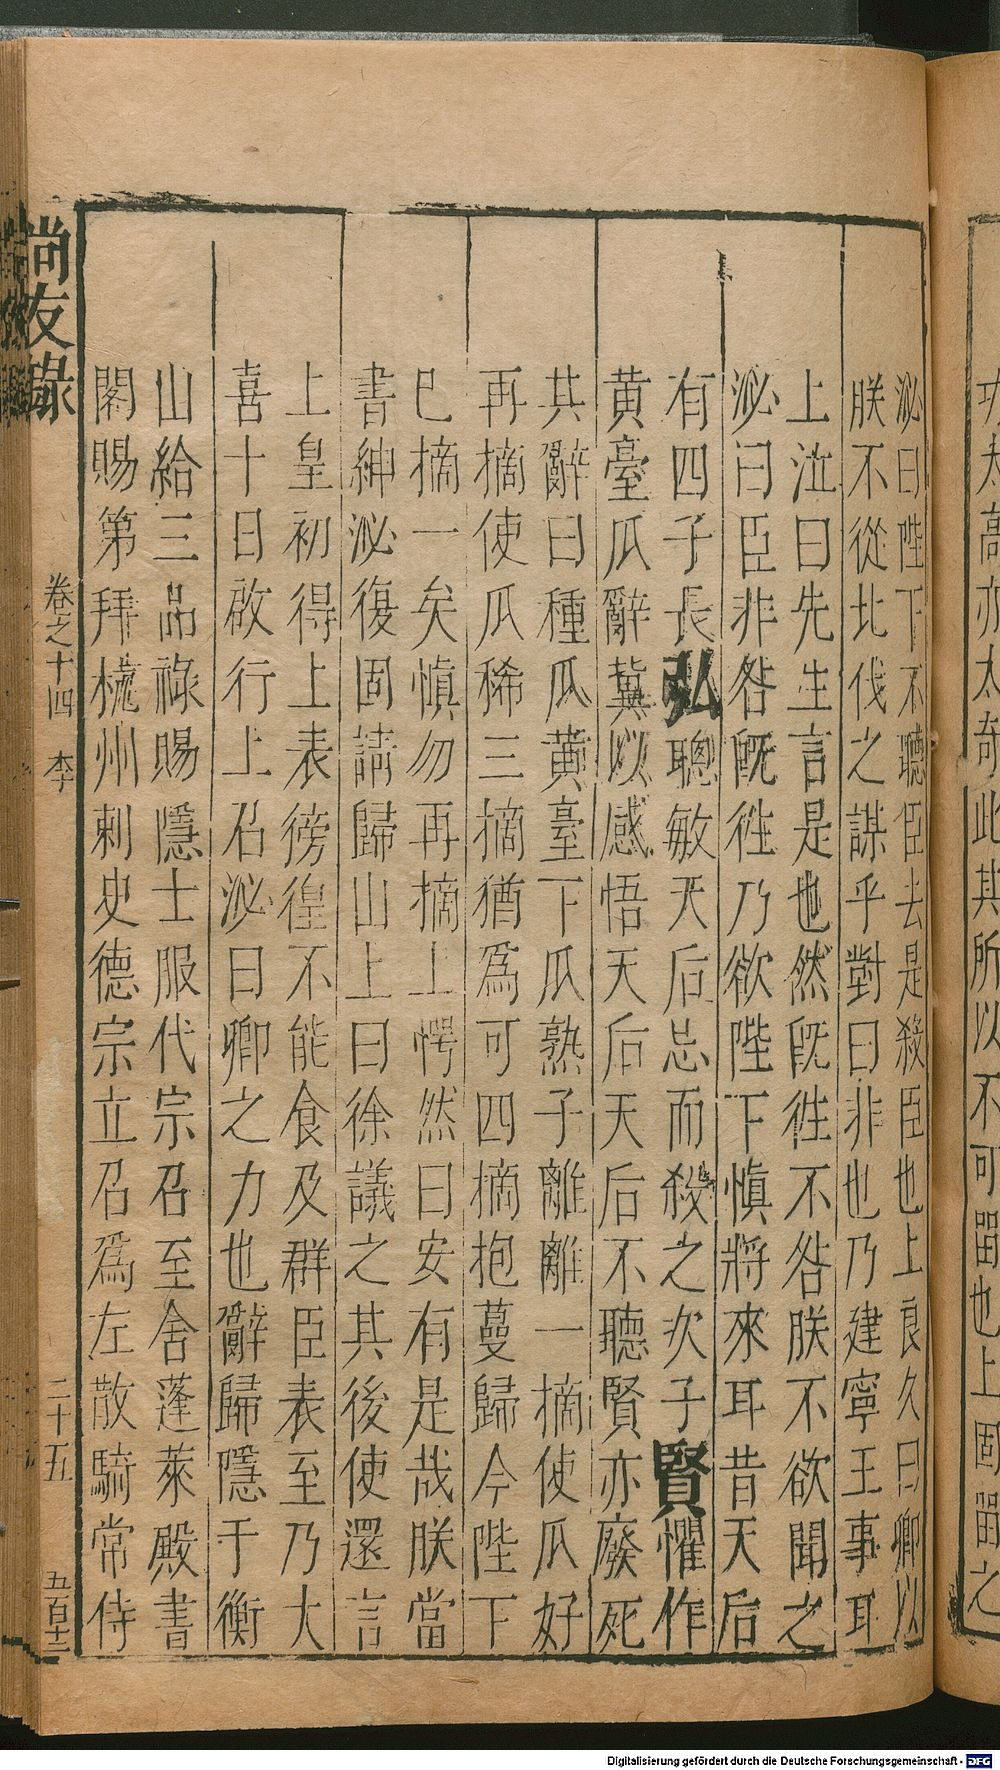 功太高亦太奇此其所以不可畱也上固畱之
泌曰陛下不聽臣去是殺臣也上良久曰卿以
朕不從北伐之謀乎對曰非也乃建寧王事耳
上泣曰先生言是也然旣徃不咎朕不欲聞之
泌曰臣非咎旣徃乃欲陛下愼將來耳昔天后
有四子長弘聰敏天后忌而殺之次子賢懼作
黄臺瓜辭冀以感悟天后天后不聽賢亦廢死
其辭曰種瓜黄臺下瓜熟子離離一摘使瓜好
再摘使瓜稀三摘猶爲可四摘抱蔓歸今陛下
巳摘一矣愼勿再摘上愕然曰安有是哉朕當
書紳泌復固請歸山上曰徐議之其後使還言
上皇初得上表徬徨不能食及群臣表至乃大
喜十日啟行上召泌曰卿之力也辭歸隱于衡
山給三品祿賜隱士服代宗召至舍蓬萊殿書
閣賜第拜杭州刺史德宗立召爲左散騎常侍
尚友錄
卷之十四 李
二十五
五百十二
Digitalisierung gefördert durch die Deutsche Forschungsgemeinschaft - DFG